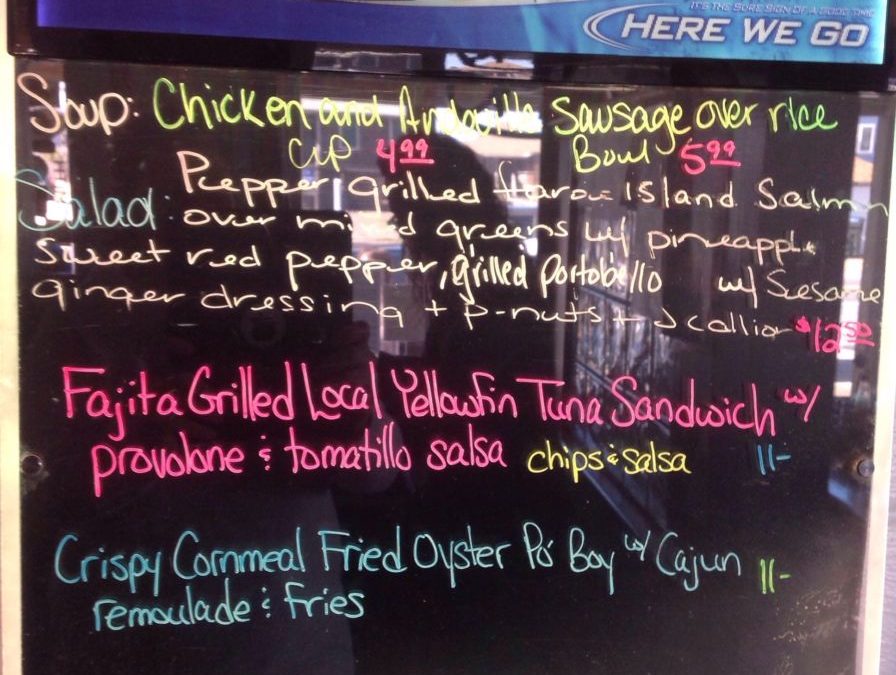 IT'S THE SURE SIGN OF A GOOD TIME
HERE WE GO
Soup: Chicken and Andouille Sausage over rice
CUP 4.99 Bowl 5.99
Salad: Pepper grilled faroe Island Salmn
over mixed greens w/ pineapple
Sweet red pepper, grilled Portobello w/ Sesame
ginger dressing + P-nuts + Scallion $12.50
Fajita Grilled Local Yellowfin Tuna Sandwich w/
provolone & tomatillo salsa chips & salsa 11-
Crispy Cornmeal Fried Oyster Po' Boy w/ Cajun 11-
remoulade & fries